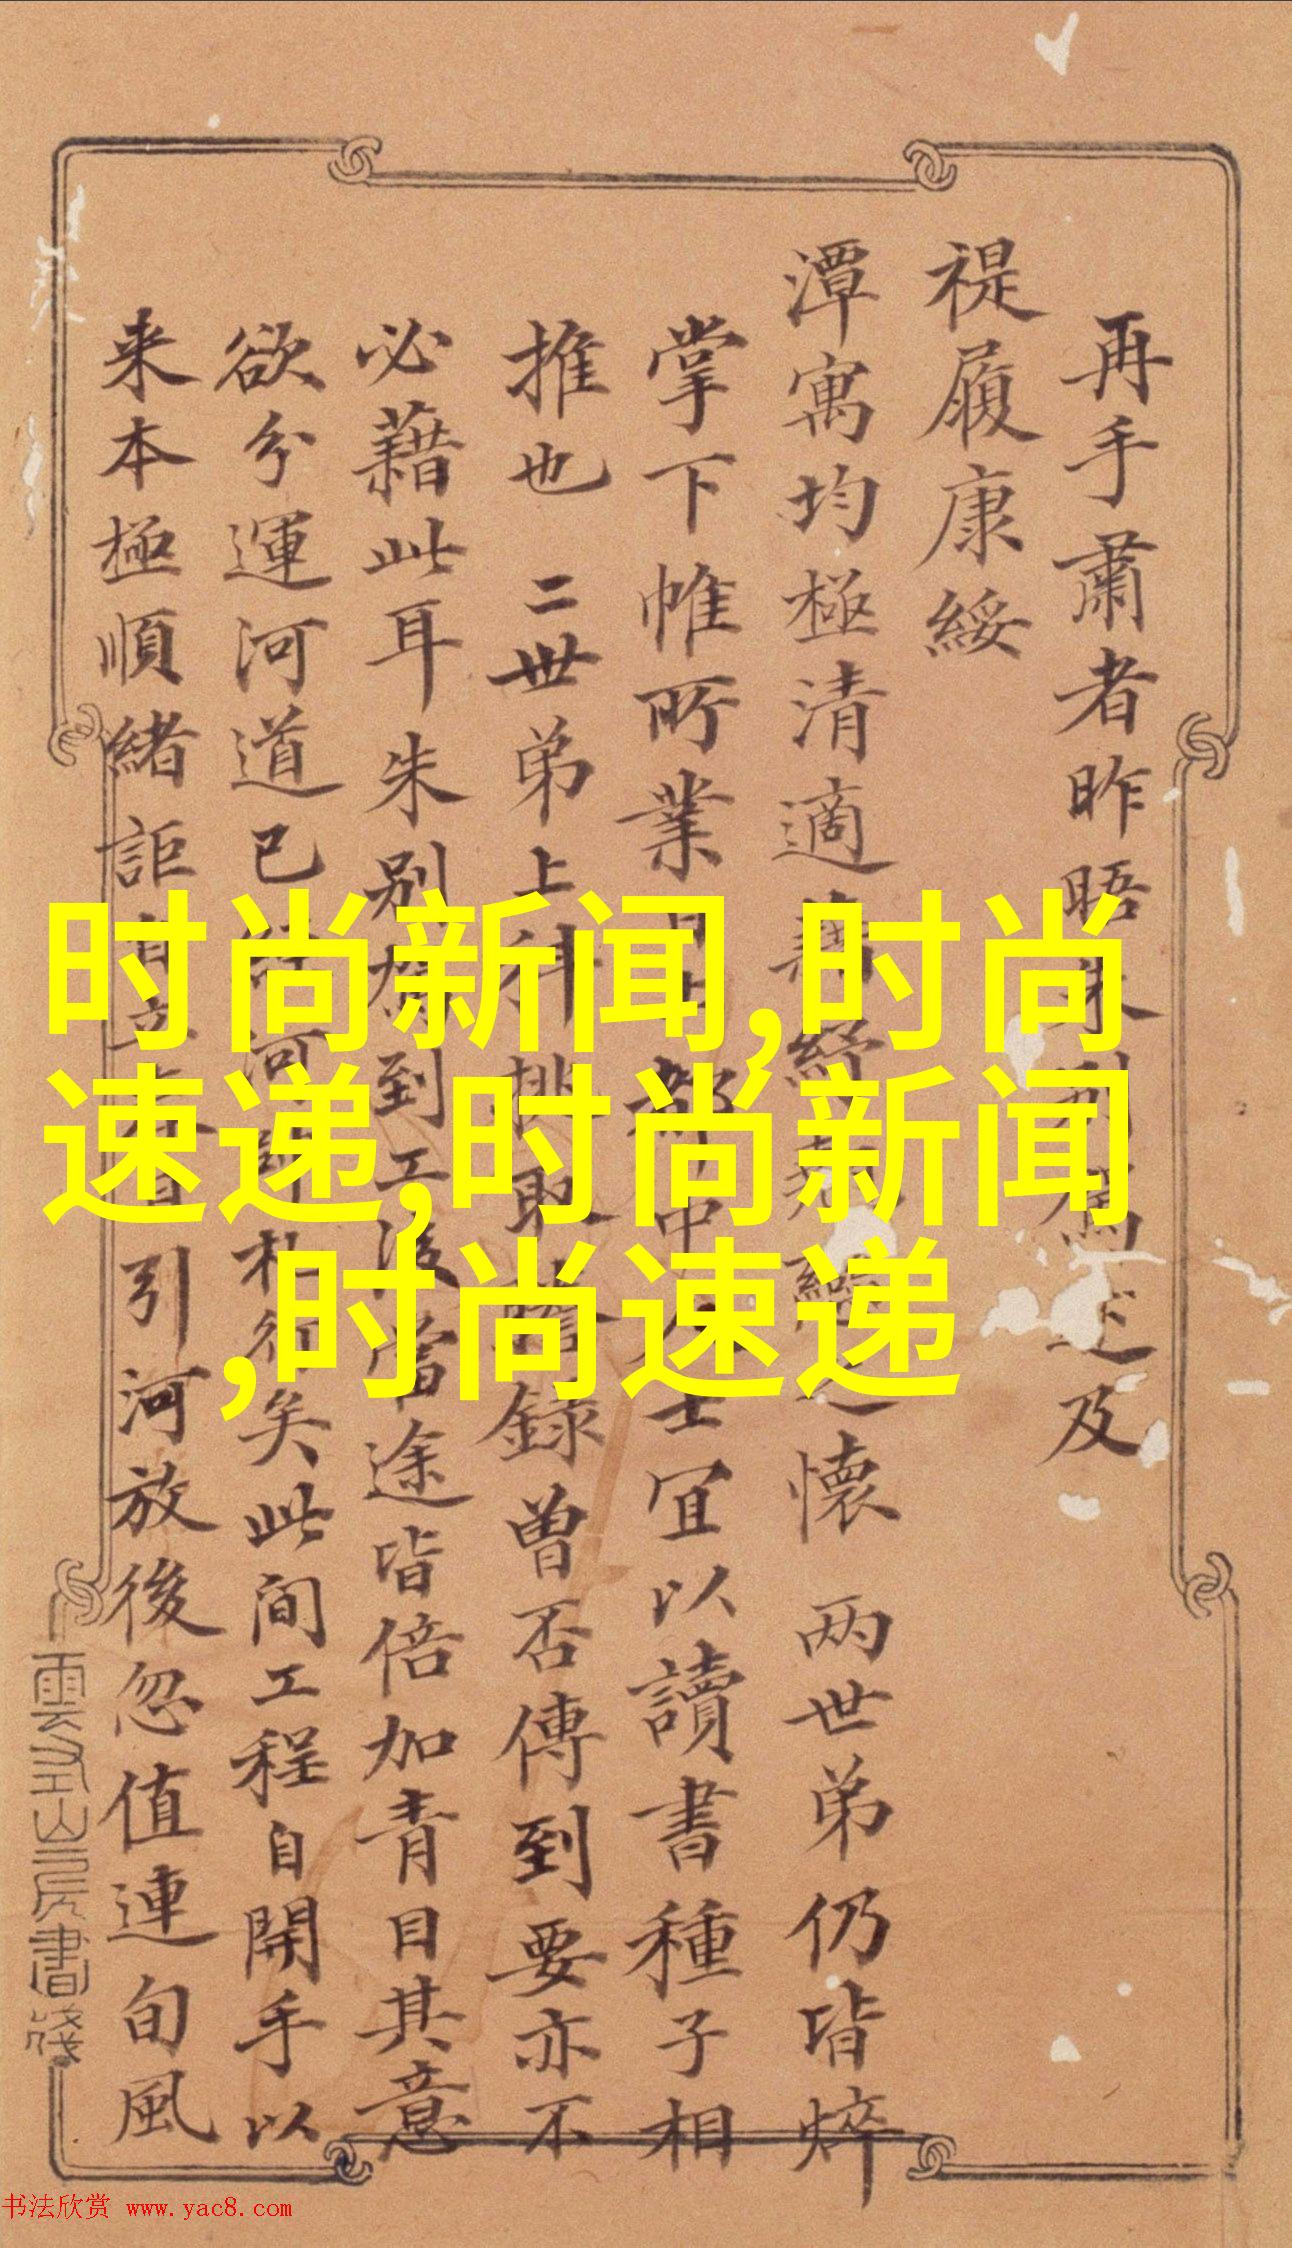 再手肅者昨晤朱別駕述及
禔履康綏
潭寓均極清適 懷 两世弟仍皆焠
掌下帷所業 都中 士宜以讀書種子相
推也 二世弟上科挑取謄錄曾否傳到要亦不
必藉此耳朱別駕到工後當途皆倍加青目其意
欲兮運河道已 河 札行矣此间工程自開手以
来本極順緒詎 引河放後忽值連旬風
雲 山房書箋
时尚新闻,时尚
速递,时尚新闻
,时尚速递
书法欣赏 www.yac8.com